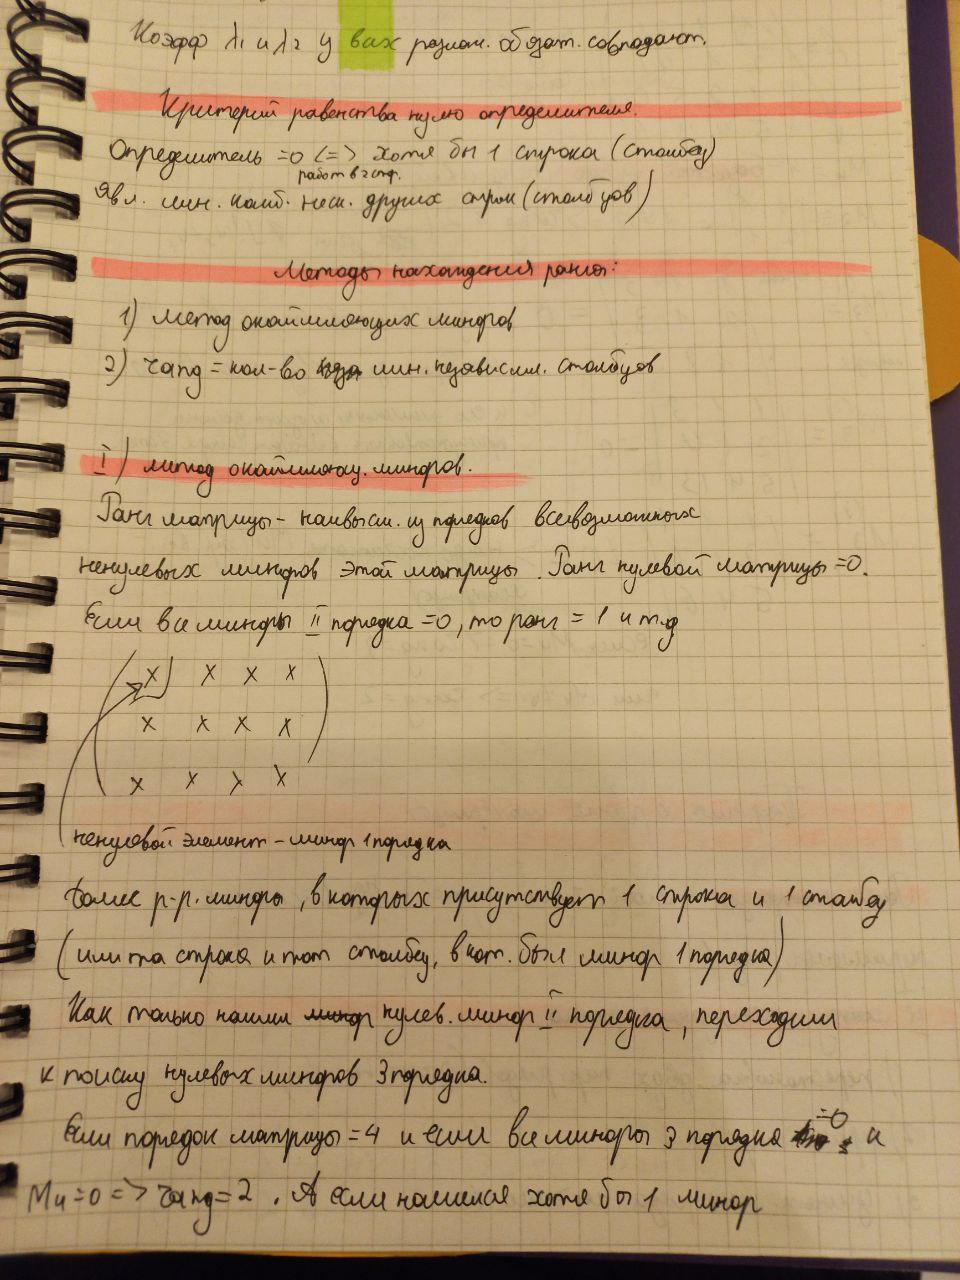 Коэфф λ₁ и λ₂ у всех разлож. обязат. совпадают.
Критерий равенства нулю определителя.
Определитель =0 <=> хотя бы 1 строка (столбец)
работ в 2 стор.
явл. лин. комб. неск. других строк (столбцов)
Методы нахождения ранга:
1) метод окаймляющих миноров
2) rang = кол-во лин. независим. столбцов
I) метод окаймляющ. миноров.
Ранг матрицы - наивысш. из порядков всевозможных
ненулевых миноров этой матрицы. Ранг нулевой матрицы =0.
Если все миноры II порядка =0, то ранг = 1 и т.д
x x x x
x x x x
x x x x
ненулевой элемент - минор 1 порядка
Далее р-р. миноры, в которых присутствует 1 строка и 1 столбец
(или та строка и тот столбец, в кот. был минор 1 порядка)
Как только нашли минор нулев. минор II порядка, переходим
к поиску нулевых миноров 3 порядка.
Если порядок матрицы =4 и если все миноры 3 порядка =0 и
M₄=0 => rang=2. А если нашелся хотя бы 1 минор